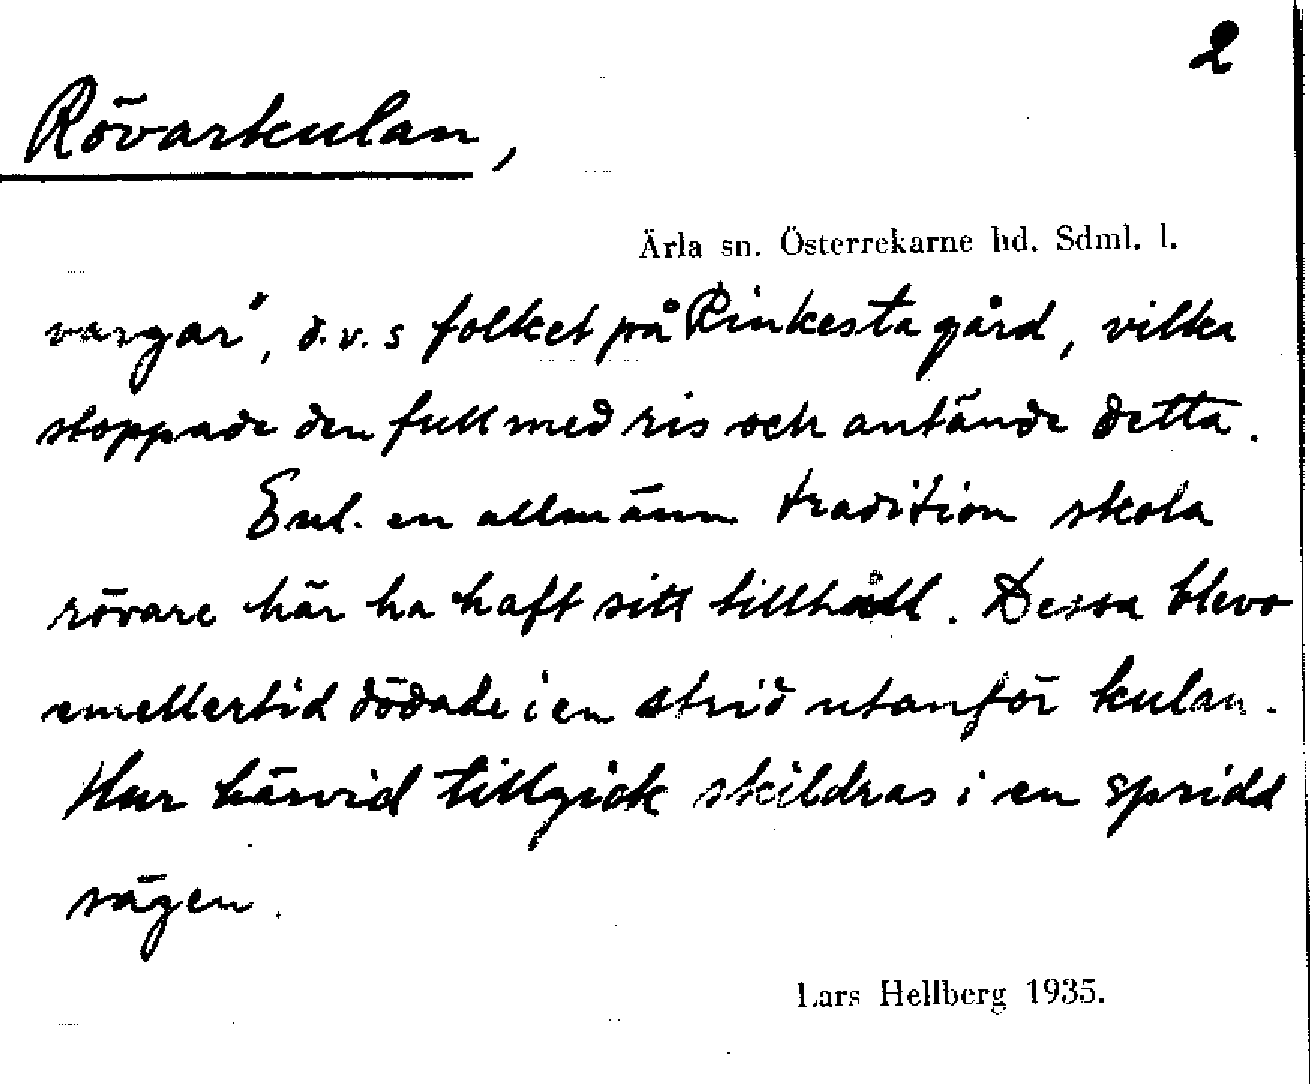 2
Rövarkulan,
Ärla sn. Österrekarne hd. Sdml. l.
vargar", d.v.s folket på Rinkesta gård, vilka
stoppade den full med ris och antände detta.
Enl. en allmänn tradition skola
rövare här ha haft sitt tillhåll. Dessa blevo
emellertid dödade i en strid utanför kulan.
Hur härvid tillgick skildras i en spridd
sägen.
Lars Hellberg 1935.